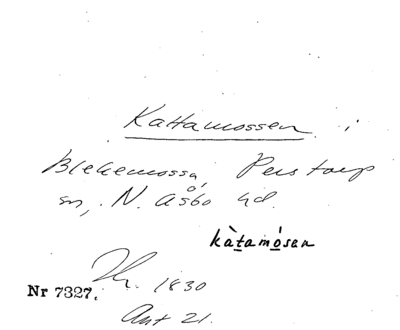 Kattamossen i
Blekemossa, Perstorp
sn, N. Åsbo hd.
kàtamósen
Nr 7327. Hr. 1830
Ant 21.